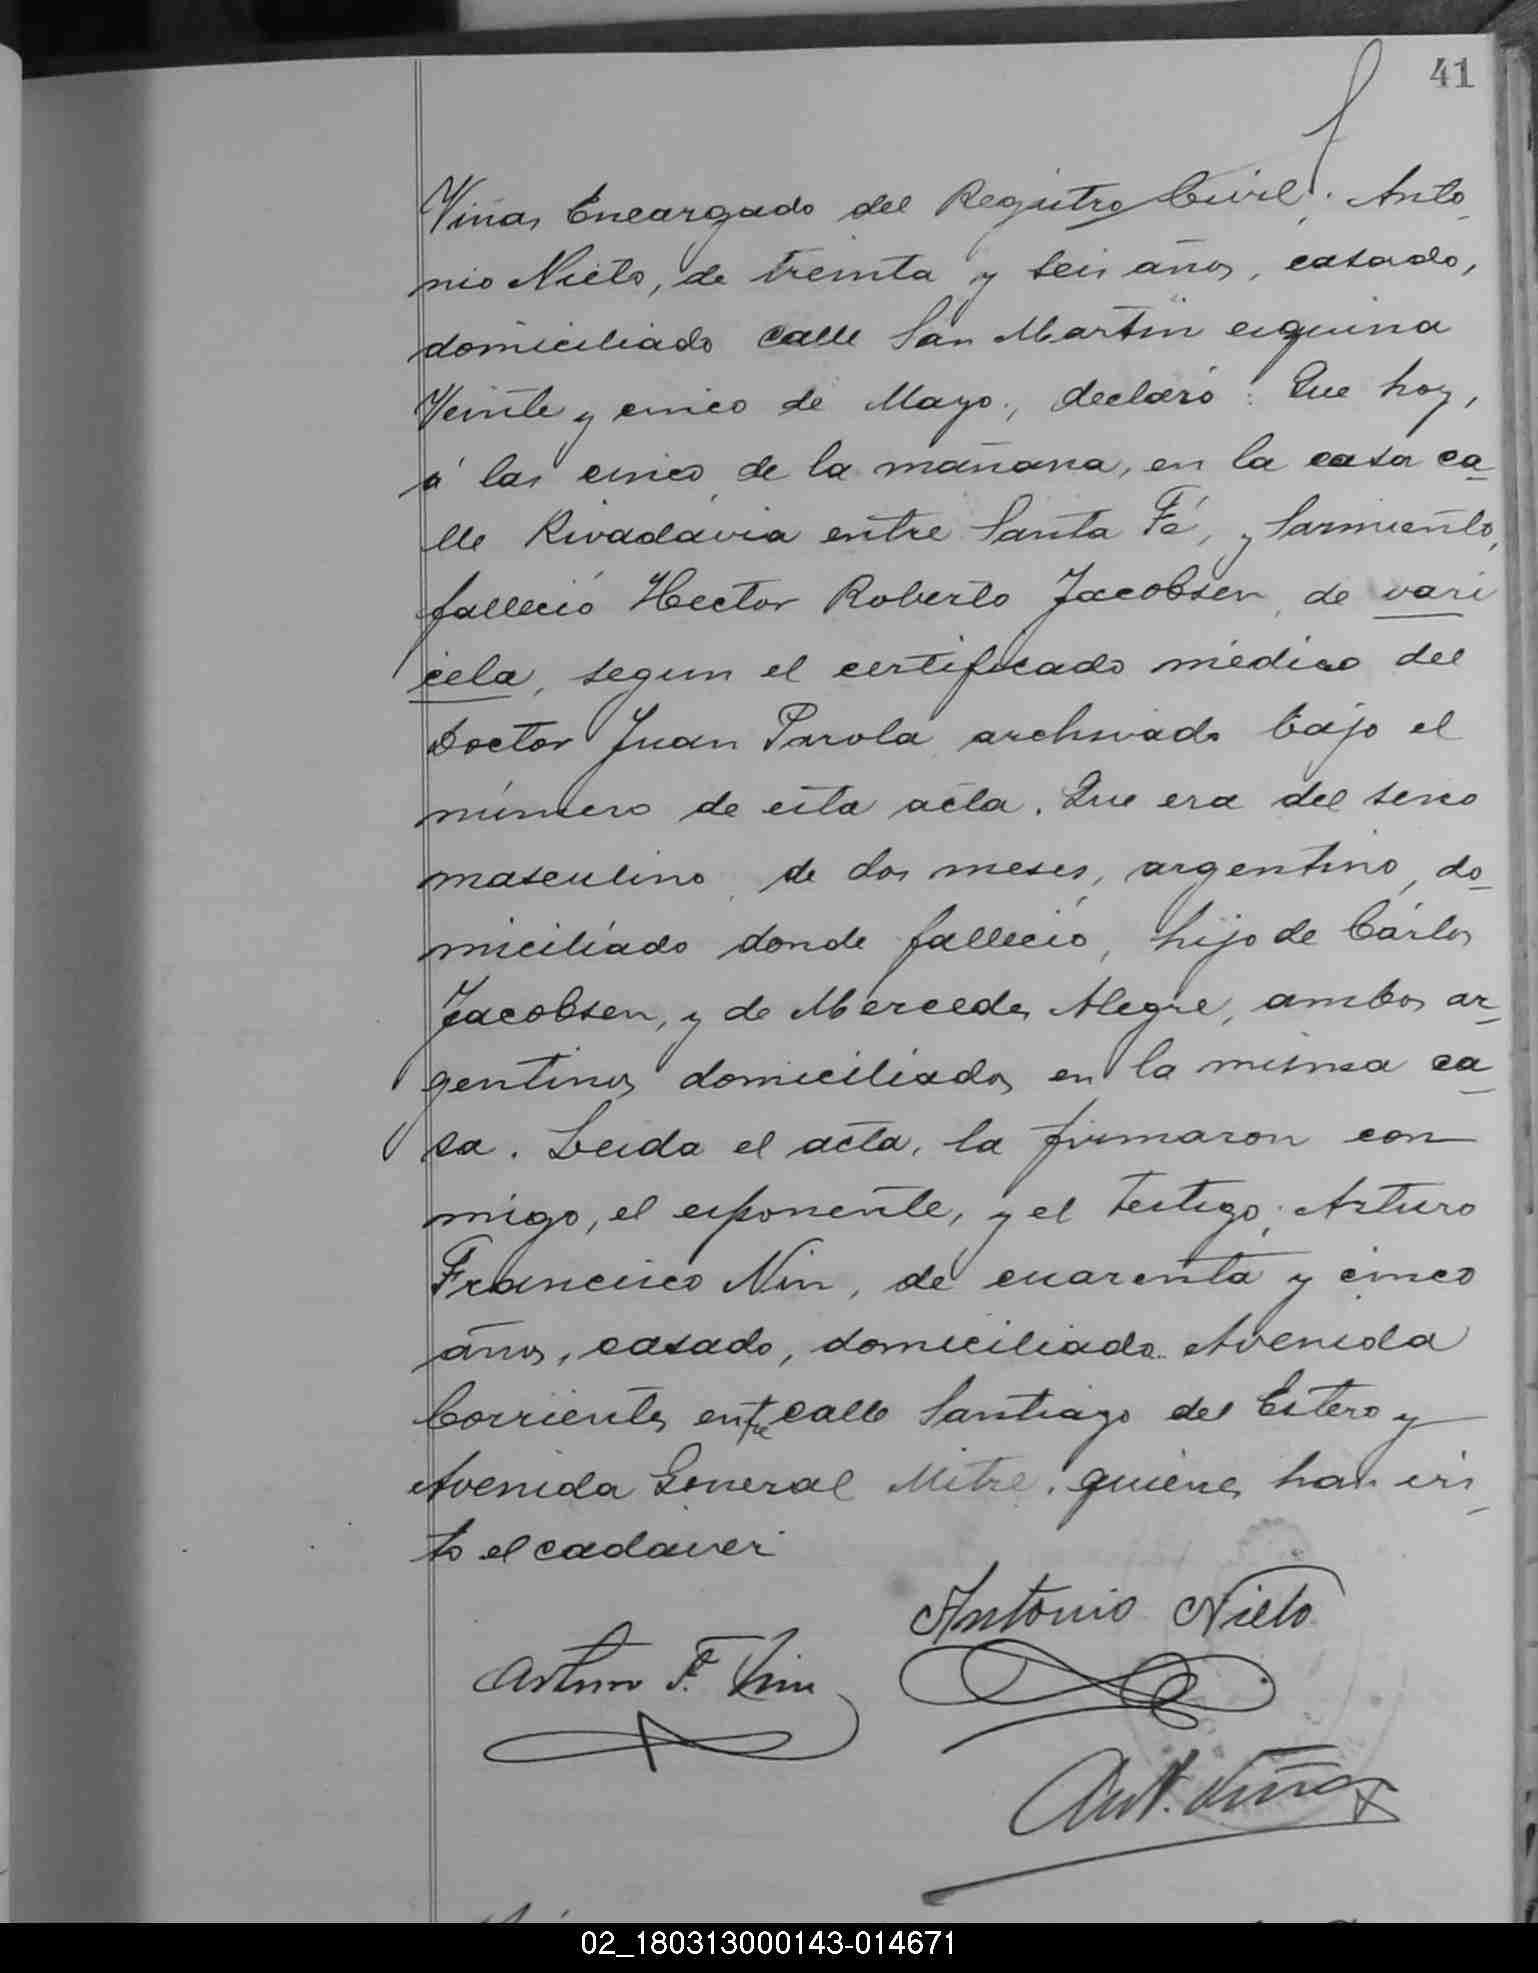 41
Viñas Encargado del Registro Civil; Anto
nio Nieto, de treinta y seis años, casado,
domiciliado calle San Martin esquina
Veinte y cinco de Mayo, declaró: Que hoy,
á las cinco de la mañana, en la casa ca
lle Rivadavia entre Santa Fé, y Sarmiento,
falleció Hector Roberto Jacobsen, de vari
cela, segun el certificado médico del
Doctor Juan Parola archivado bajo el
número de esta acta. Que era del sexo
masculino, de dos meses, argentino, do
miciliado donde falleció, hijo de Cárlos
Jacobsen, y de Mercedes Alegre, ambos ar
gentinos domiciliados en la misma ca
sa. Leida el acta, la firmaron con
migo, el exponente, y el testigo; Arturo
Francisco Nin, de cuarenta y cinco
años, casado, domiciliado Avenida
Corrientes entre calle Santiago del Estero y
Avenida General Mitre, quienes han vis
to el cadaver.
Antonio Nieto
Arturo F. Nin
Ant. Viñas
02_180313000143-014671